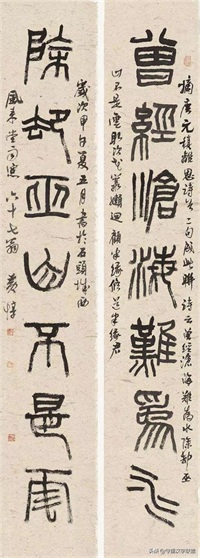 摘唐元稹離思詩中二句成此聯詩云曾經滄海難為水除却巫
曾經滄海難爲水
山不是雲取次花叢嬾迴顧半緣修道半緣君
歲次甲午夏五月書於石頭城西
除却巫山不是雲
風來堂南窗六十七翁黃惇